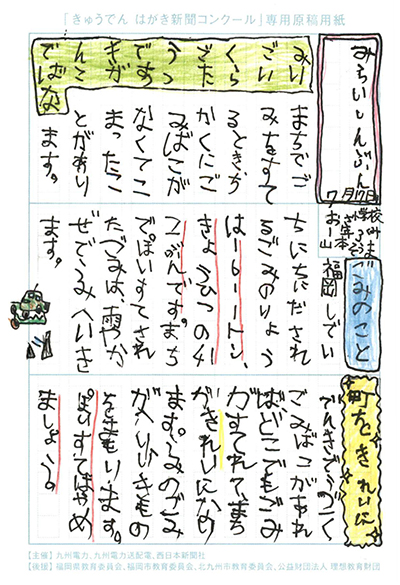 「きゅうでん はがき新聞コンクール」専用原稿用紙
みらいしんぶん
7月17日
まちでご
みをすて
るとき、ち
かくにご
みばこが
なくてこ
まったこ
とがあり
ます。
ごみのこと
福岡しでい
ちにちにだされ
るごみのりょう
トン、
です。まち
でぽいすてされ
たごみは、雨やか
ぜでうみへいき
ます。
町をきれいに
でんきでうごく
ごみばこがあれ
ばどこでもごみ
がすてれて、まち
がきれいになり
ます。うみのごみ
がへりいきもの
をまもります。
ぽいすてはやめ
ましょう。
【主催】九州電力、九州電力送配電、西日本新聞社
【後援】福岡県教育委員会、福岡市教育委員会、北九州市教育委員会、公益財団法人 理想教育財団